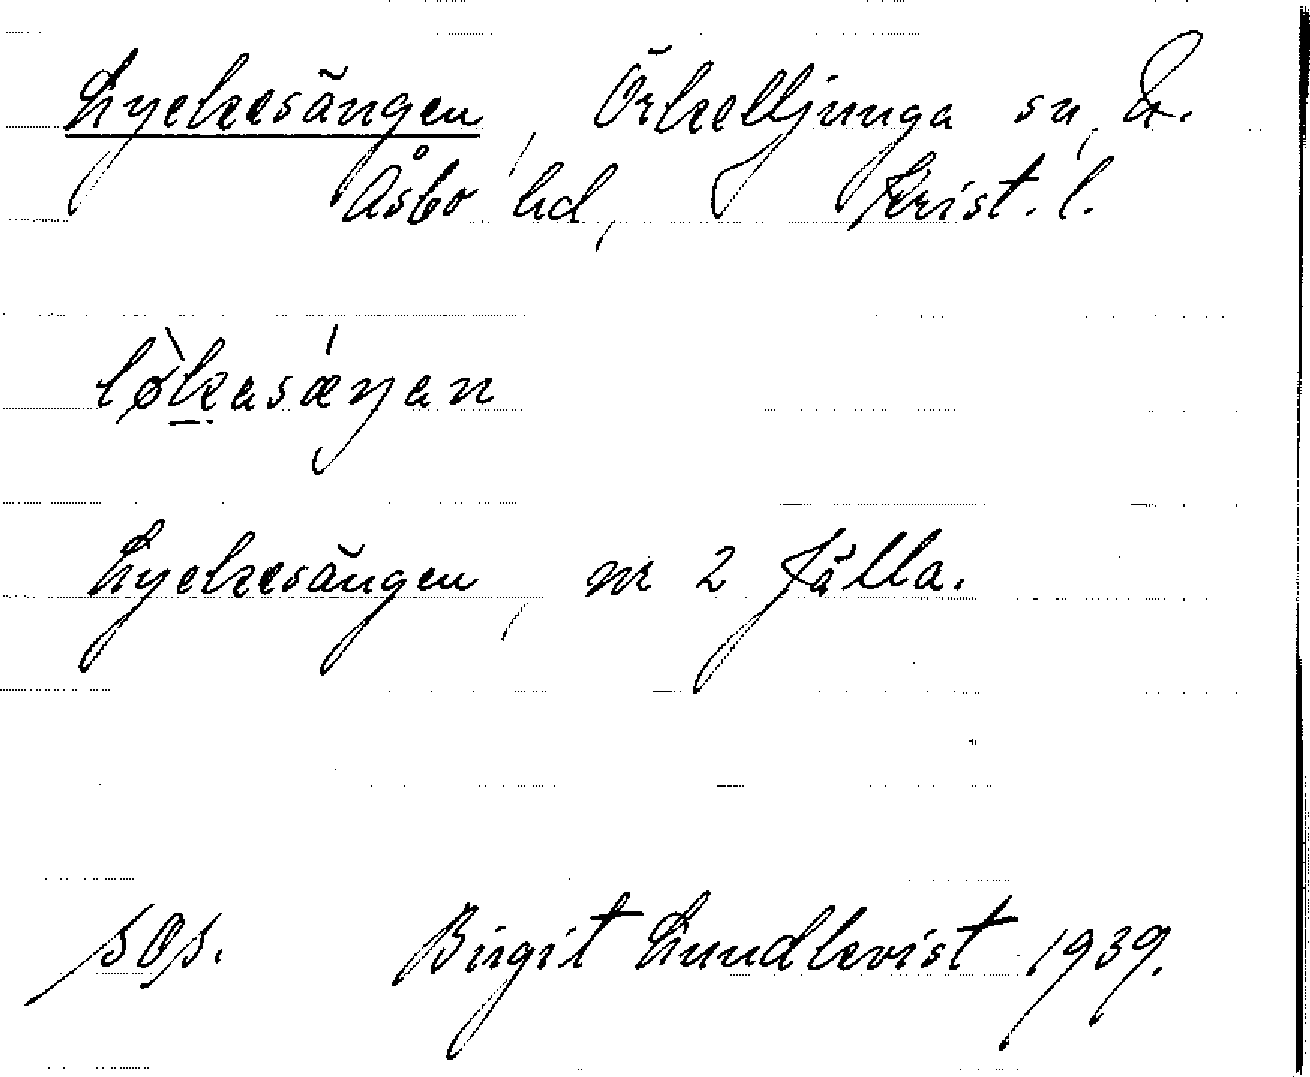 Lyckesängen, Örkelljunga sn, N.
Åsbo hd, Krist. l.
lø̀kasǽŋan
Lyckesängen, nr 2 Fålla.
Birgit Lundkvist 1939.